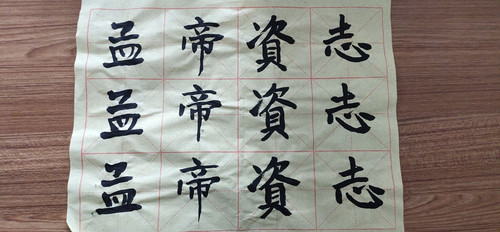 志志志
資資資
帝帝帝
孟孟孟